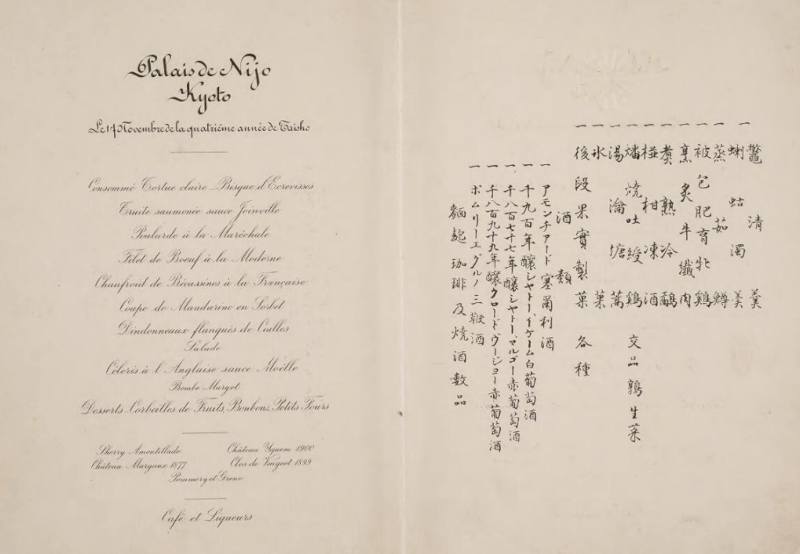 Palais de Nijo
Kyoto
Le 17 Novembre de la quatrième année de Taisho
Consommé Tortue claire - Bisque d'Ecrevisses
Truite saumonée sauce Joinville
Poularde à la Maréchale
Filet de Bœuf à la Moderne
Chaufroid de Bécassines à la Française
Coupe de Mandarine en Sorbet
Dindonneaux flanqués de Cailles
Salade
Céleris à l'Anglaise sauce Moëlle
Bombe Margot
Desserts, Corbeilles de Fruits, Bonbons, Petits Fours
Sherry Amontillado
Château Yquem 1900
Château-Margaux 1877
Clos de Vougeot 1899
Pommery et Greno
Café et Liqueurs
一 鼈清羹
一 蜊蛄濁羹
一 蒸茹鱒
一 被包肥育牝鶏
一 烹炙牛纎肉
一 煑熟冷鷸
一 橙柑凍酒
一 燔焼吐綬鶏 交品鶉生菜
一 湯瀹塘蒿
一 氷菓
一 後段果實製菓各種
酒類
一 アモンチアード塞爾利酒
一 千九百年醸シヤトーイケーム白葡萄酒
一 千八百七十七年醸シヤトーマルゴー赤葡萄酒
一 千八百九十九年醸クロードヴージョー赤葡萄酒
一 ポムリーエグルノ三鞭酒
麺麭珈琲及焼酒数品